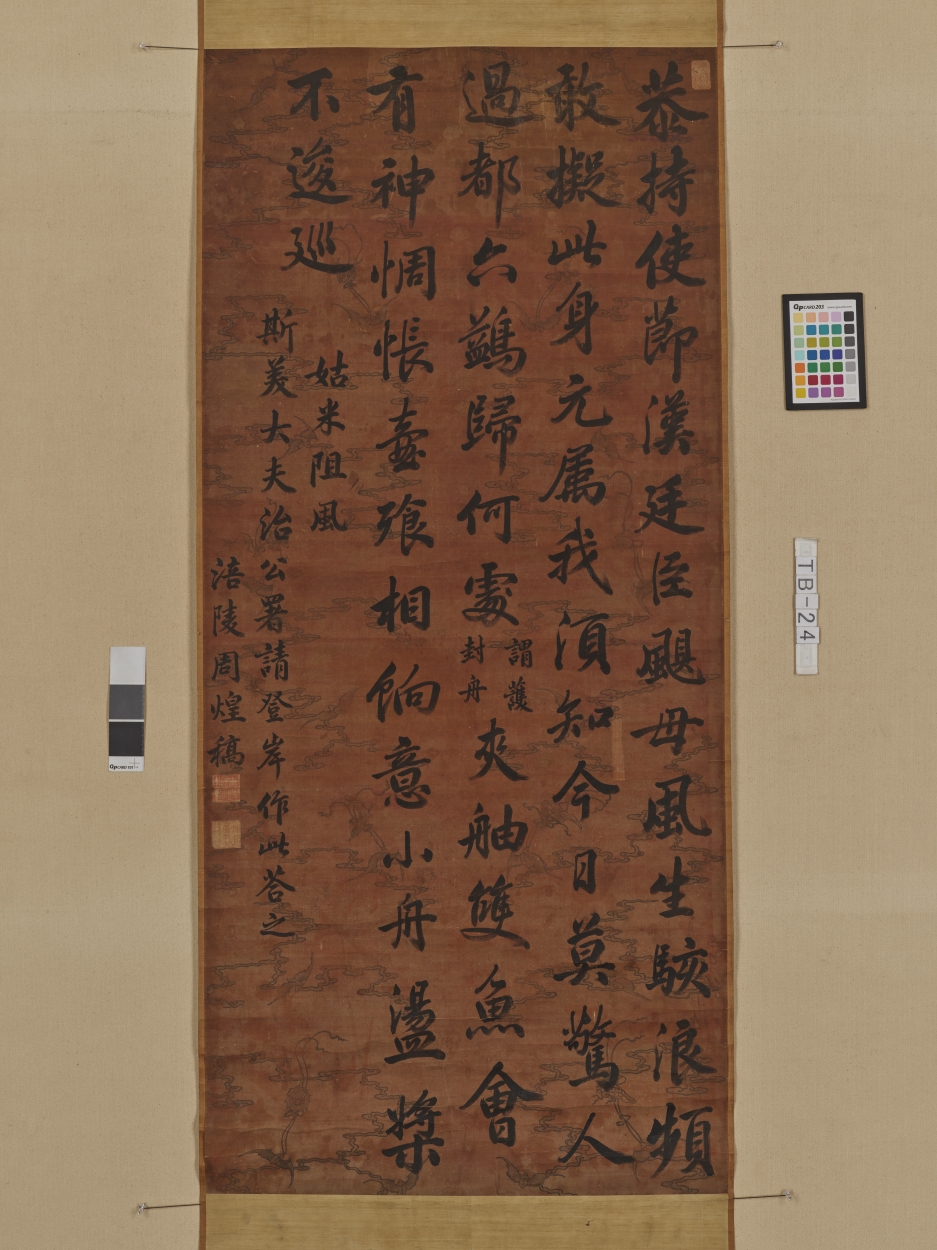 恭持使節漢廷臣颶母風生駭浪頻
敢擬此身元属我須知今日莫驚人
過都六鷁歸何處謂護封舟夾舳雙魚會
有神惆悵壷飡相餉意小舟盪槳
不逡巡
姑米阻風
斯美大夫治公署請登岸作此荅之
涪陵周煌稿
QpCARD 203
TB-24
QpCARD 101